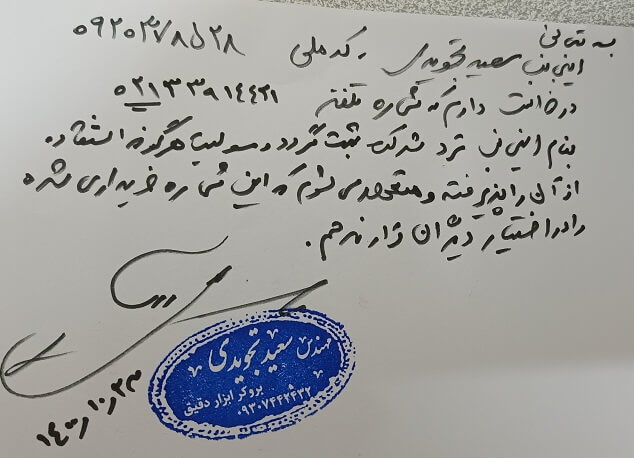 بسمه تعالی
اینجانب سعید تجویدی کد ملی ۰۹۲۰۳۷۸۵۲۸
درخواست دارم که شماره تلفن ۰۲۱۳۳۹۱۴۴۲۱
بنام اینجانب نزد شرکت ثبت گردد و مسولیت هرگونه استفاده
از آن را پذیرفته و متعهد می شوم که این شماره خریداری شده
را در اختیار دیگران قرار ندهم.
مهندس سعید تجویدی
بروکر ابزار دقیق
۰۹۳۰۷۴۴۲۴۳۲